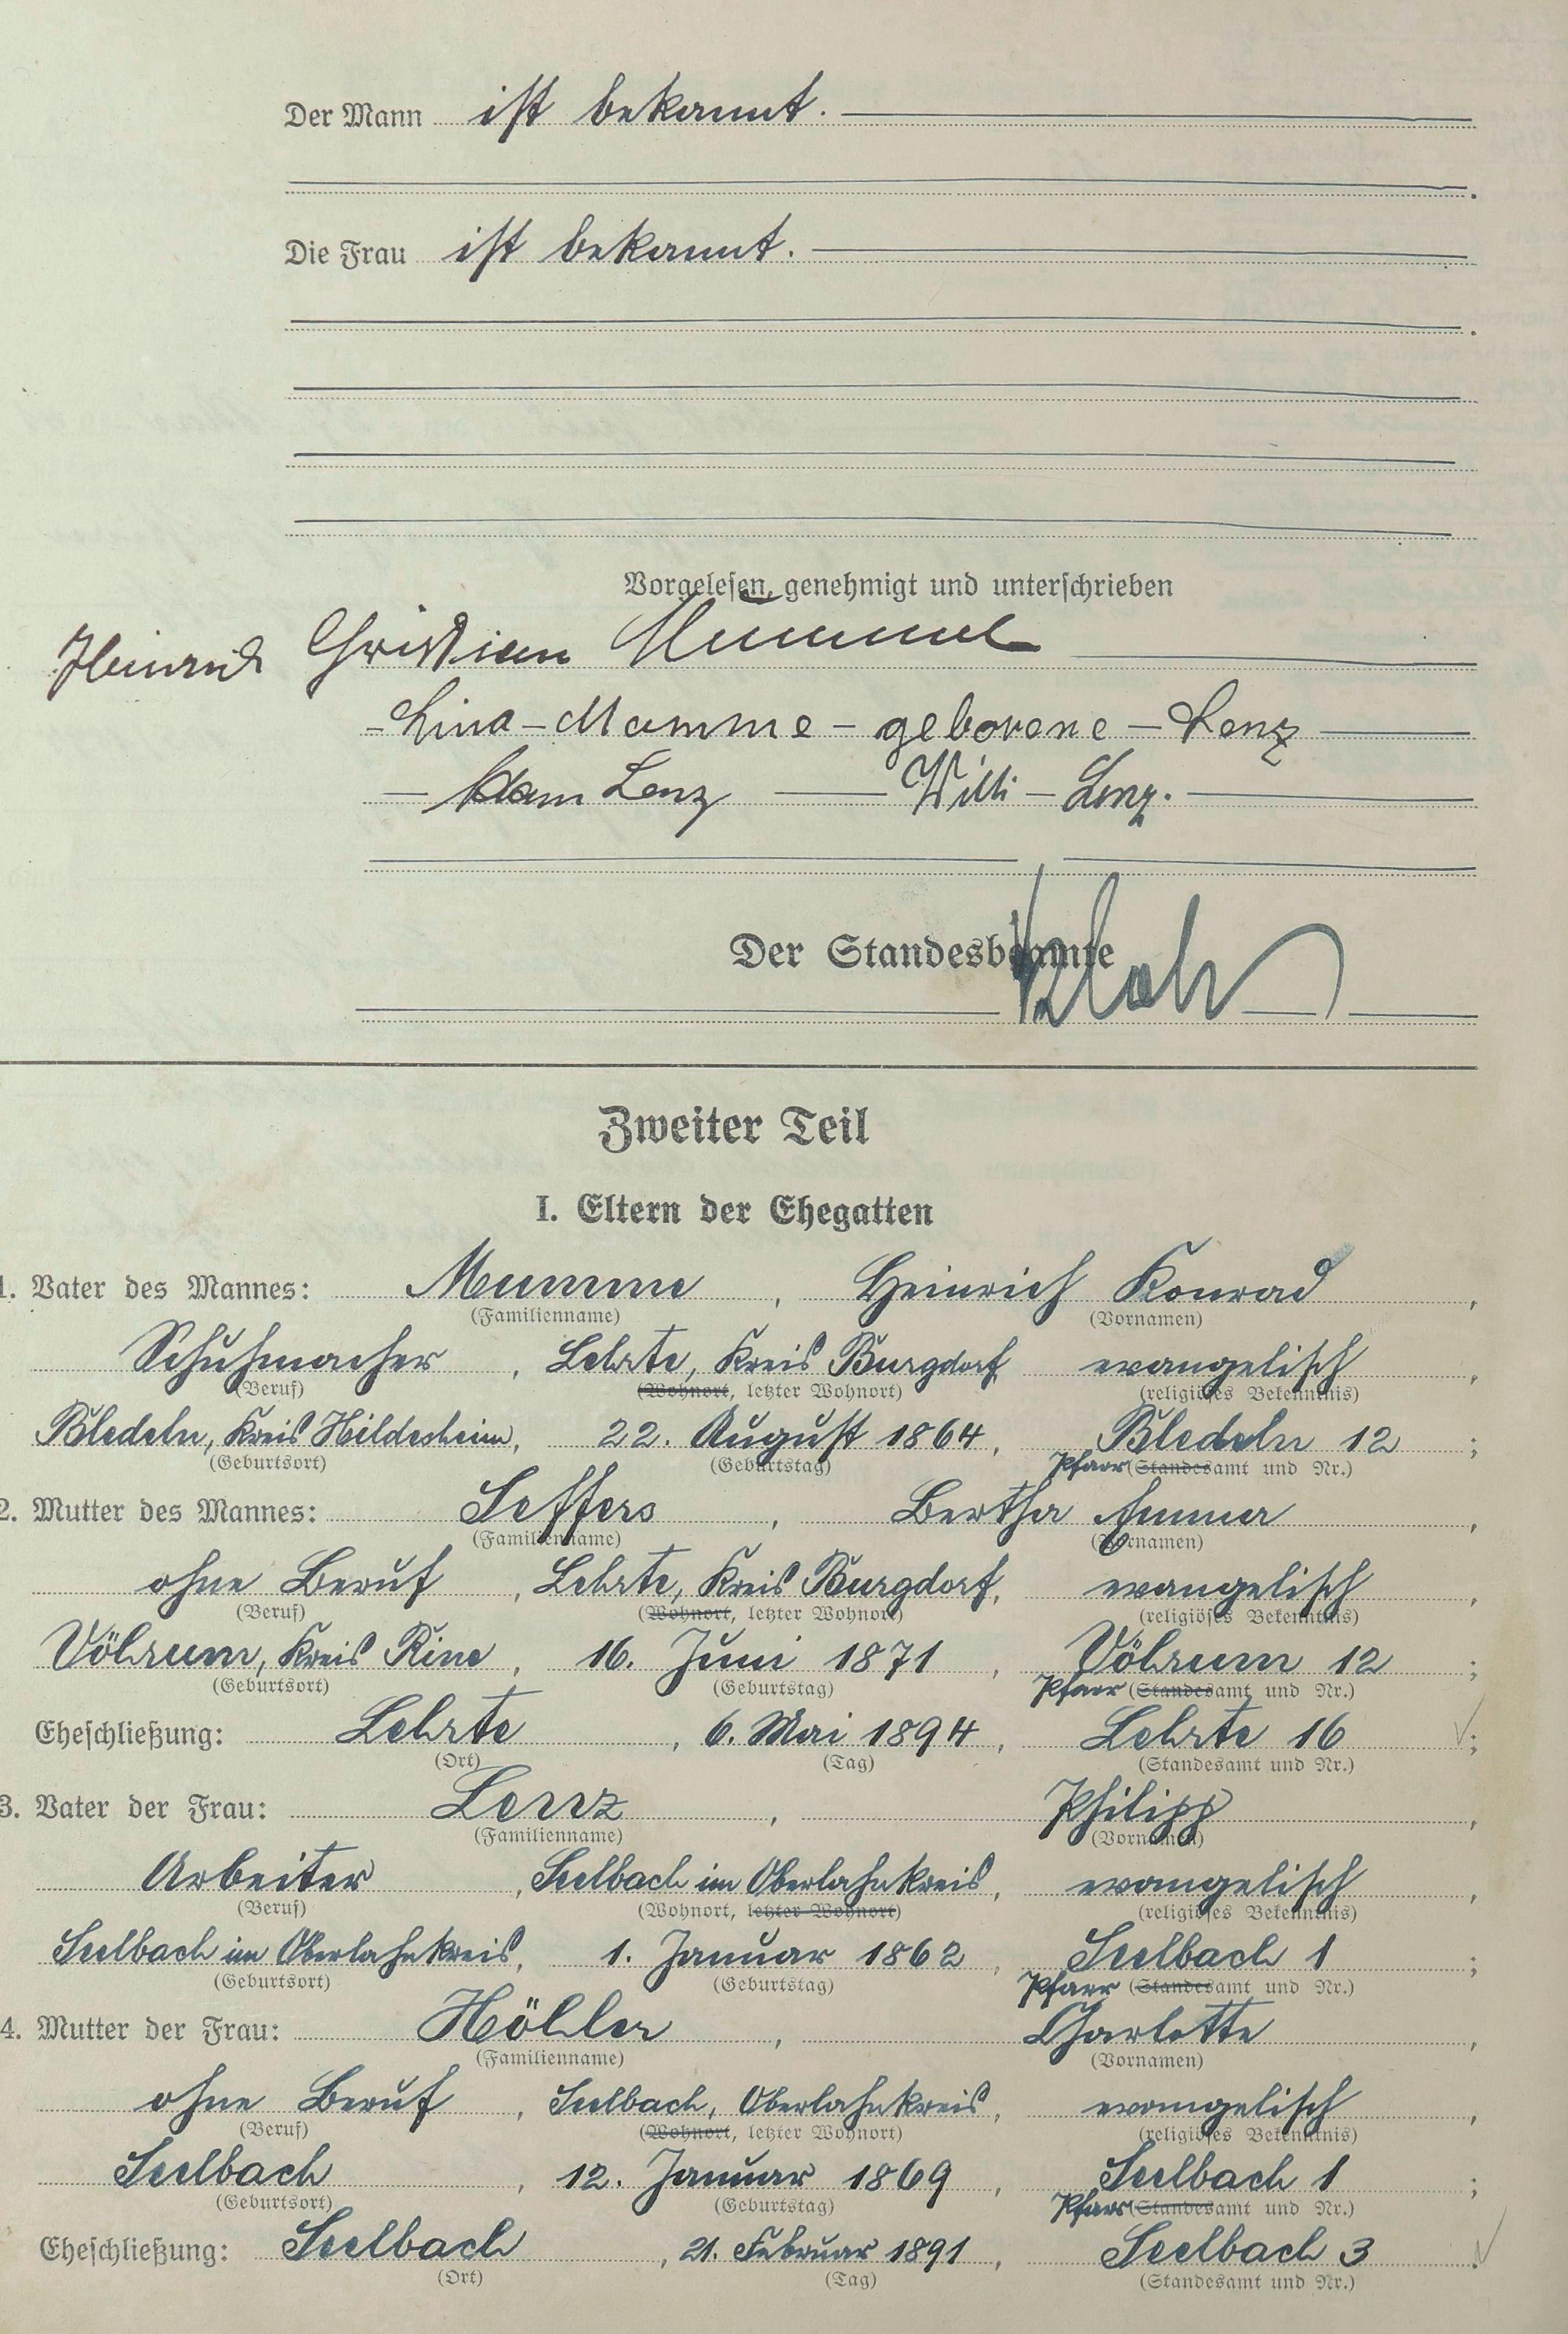 Der Mann ist bekannt.
Die Frau ist bekannt.
Vorgelesen, genehmigt und unterschrieben
Heinrich Christian Mumme
Lina Mumme geborene Lenz
Adam Lenz Willi Lenz.
Der Standesbeamte
Zweiter Teil
I. Eltern der Ehegatten
1. Vater des Mannes: Mumme, Heinrich Konrad,
(Familienname) (Vornamen)
Schuhmacher, Lehrte, Kreis Burgdorf evangelisch,
(Beruf) (Wohnort, letzter Wohnort) (religiöses Bekenntnis)
Bledeln, Kreis Hildesheim, 22. August 1864, Bledeln 12;
(Geburtsort) (Geburtstag) Pfarr (Standesamt und Nr.)
2. Mutter des Mannes: Seffers, Bertha Emma,
(Familienname) (Vornamen)
ohne Beruf, Lehrte, Kreis Burgdorf, evangelisch,
(Beruf) (Wohnort, letzter Wohnort) (religiöses Bekenntnis)
Vöhrum, Kreis Pine, 16. Juni 1871, Vöhrum 12;
(Geburtsort) (Geburtstag) Pfarr (Standesamt und Nr.)
Eheschließung: Lehrte, 6. Mai 1894, Lehrte 16;
(Ort) (Tag) (Standesamt und Nr.)
3. Vater der Frau: Lenz, Philipp,
(Familienname) (Vornamen)
Arbeiter, Seelbach im Oberlahnkreis, evangelisch,
(Beruf) (Wohnort, letzter Wohnort) (religiöses Bekenntnis)
Seelbach im Oberlahnkreis, 1. Januar 1862, Seelbach 1;
(Geburtsort) (Geburtstag) Pfarr (Standesamt und Nr.)
4. Mutter der Frau: Höhler, Charlotte,
(Familienname) (Vornamen)
ohne Beruf, Seelbach, Oberlahnkreis, evangelisch,
(Beruf) (Wohnort, letzter Wohnort) (religiöses Bekenntnis)
Seelbach, 12. Januar 1869, Seelbach 1;
(Geburtsort) (Geburtstag) Pfarr (Standesamt und Nr.)
Eheschließung: Seelbach, 21. Februar 1891, Seelbach 3.
(Ort) (Tag) (Standesamt und Nr.)